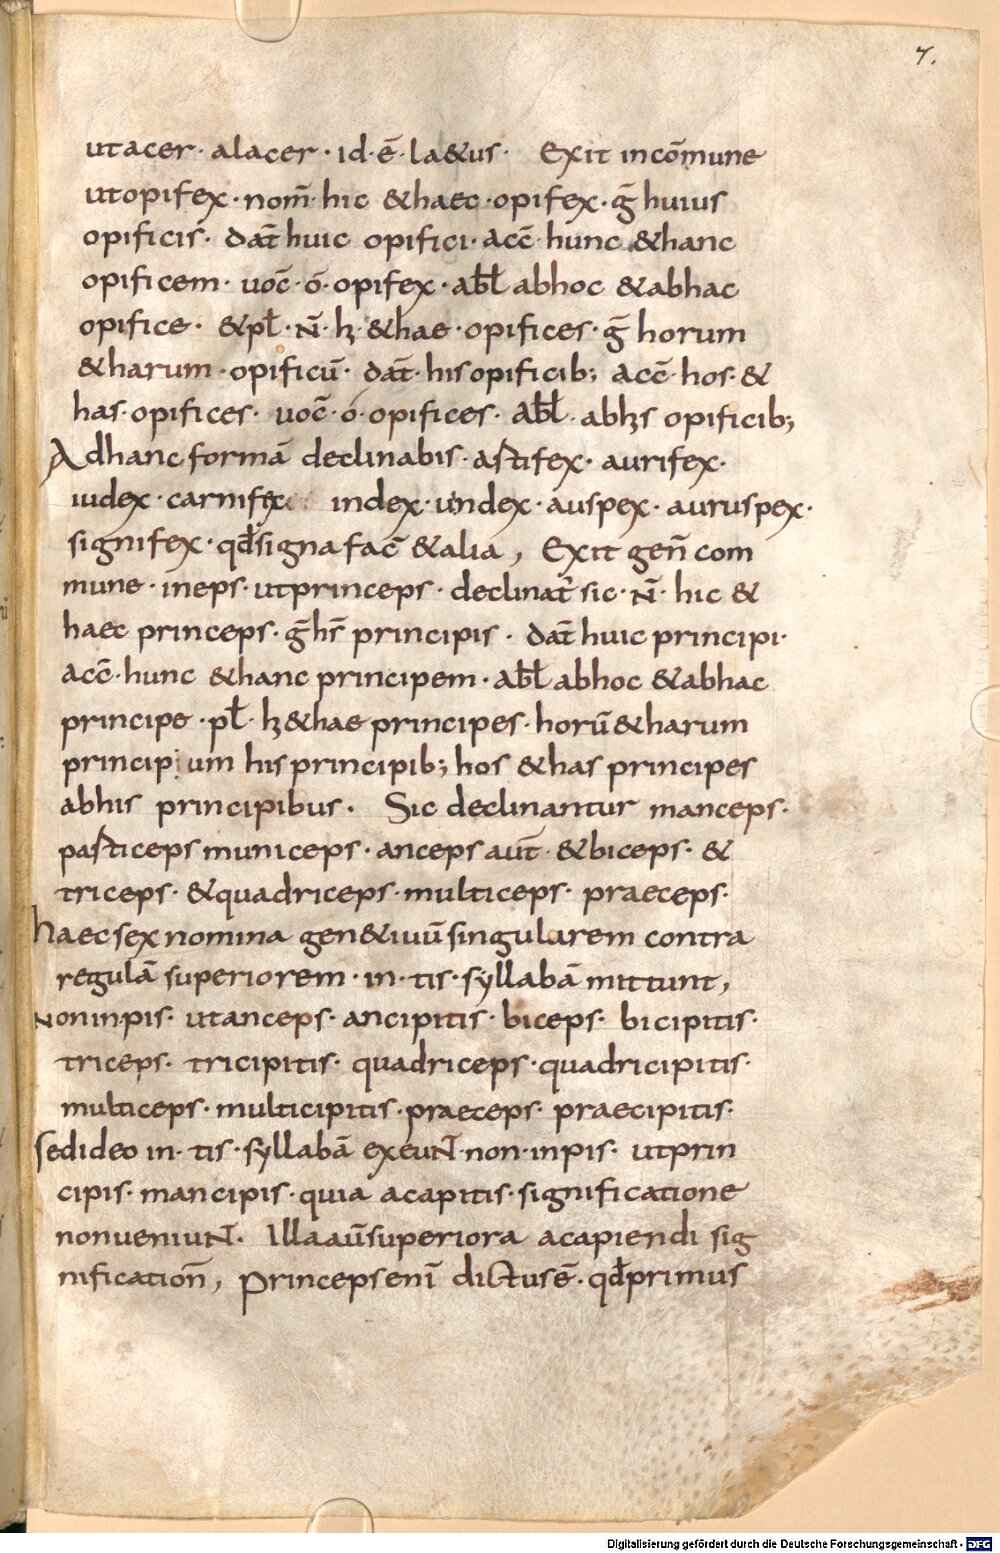 7.
ut acer · alacer · id · ē · la&us · Exit in cōmune
ut opifex · nom̄ · hic &haec · opifex · ḡ huius
opificis · dat̄ huic opifici · acc̄ hunc &hanc
opificem · uoc̄ · ō · opifex · abł abhoc &abhac
opifice · &pł · N̄ · ħ · &hae · opifices · ḡ horum
&harum · opificū · dat̄ · his opificib; acc̄ · hos · &
has · opifices · uoc̄ · ó · opifices · abł · abhis opificib;
Ad hanc formā declinabis · artifex · aurifex ·
iudex · carnifex index · uindex · auspex · auruspex ·
signifex · qđ signa fac̄ &alia, Exit gen̄ com
mune · in eps · ut princeps · declinat̄ sic · N̄ · hic &
haec princeps · ḡ hs̄ principis · dat̄ huic principi ·
acc̄ · hunc &hanc principem · abł abhoc &abhac
principe · pł · ħ &hae principes · horū &harum
principium his principib; hos &has principes
abhis principibus · Sic declinantur manceps ·
particeps municeps · anceps aut̄ · &biceps · &
triceps · &quadriceps · multiceps · praeceps ·
haec sex nomina gen&iuū singularem contra
regulā superiorem · in · tis · syllabā mittunt,
Non in pis · ut anceps · ancipitis · biceps · bicipitis ·
triceps · tricipitis · quadriceps · quadricipitis ·
multiceps · multicipitis · praeceps · praecipitis ·
sed ideo in · tis · syllabā exeuNT · non · in pis · ut prin
cipis · mancipis · quia a capitis · significatione
non ueniuNT · Illa aū superiora a capiendi sig
nification̄, Princeps enī dictus ē · qđ primus
Digitalisierung gefördert durch die Deutsche Forschungsgemeinschaft - DFG